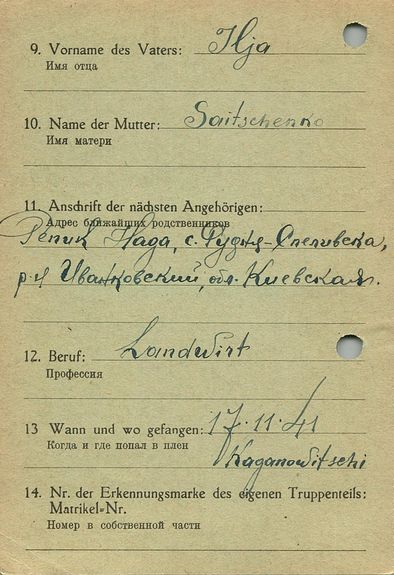 9. Vorname des Vaters: Ilja
Имя отца
10. Name der Mutter: Saitschenko
Имя матери
11. Anschrift der nächsten Angehörigen:
Адрес ближайших родственников
Репик Нада, с. Рудня-
р-н Иванковский, обл. Киевская.
12. Beruf: Landwirt
Профессия
13 Wann und wo gefangen: 17.11.41
Когда и где попал в плен
Kaganowitschi
14. Nr. der Erkennungsmarke des eigenen Truppenteils:
Matrikel-Nr.
Номер в собственной части